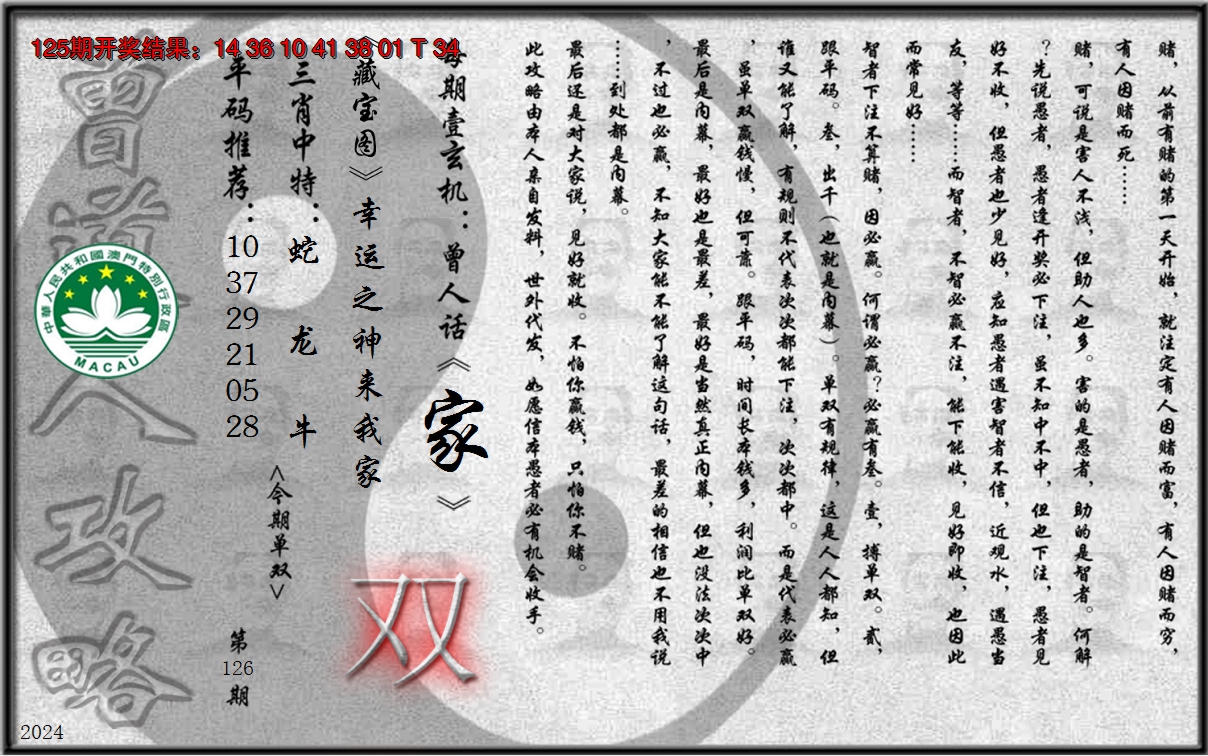 125期开奖结果：14 36 10 41 38 01 T 34
赌，从前有赌的第一天开始，就注定有人因赌而富，有人因赌而穷，
有人因赌而死……
赌，可说是害人不浅，但助人也多。害的是愚者，助的是智者。何解
？先说愚者，愚者逢开奖必下注，虽不知中不中，但也下注，愚者见
好不收，但愚者也少见好，应知愚者遇害智者不信，近观水，遇愚当
友，等等……而智者，不智必赢不注，能下能收，见好即收，也因此
而常见好……
智者下注不算赌，因必赢。何谓必赢？必赢有叁。壹，搏单双。贰，
跟平码。叁，出千（也就是内幕）。单双有规律，这是人人都知，但
谁又能了解，有规则不代表次次都能下注，次次都中。而是代表必赢
，虽单双赢钱慢，但可靠。跟平码，时间长本钱多，利润比单双好。
最后是内幕，最好也是最差，最好是当然真正内幕，但也没法次次中
，不过也必赢，不知大家能不能了解这句话，最差的相信也不用我说
……到处都是内幕。
最后还是对大家说，见好就收。不怕你赢钱，只怕你不赌。
此攻略由本人亲自发料，世外代发，如愿信本愚者必有机会收手。
每期壹玄机：曾人话《家》
《藏宝图》幸运之神来我家
双
三肖中特：蛇 龙 牛
<今期单双>
平码推荐：
10
37
29
21
05
28
第
126
期
曾道人攻略
中華人民共和國澳門特別行政區
MACAU
2024